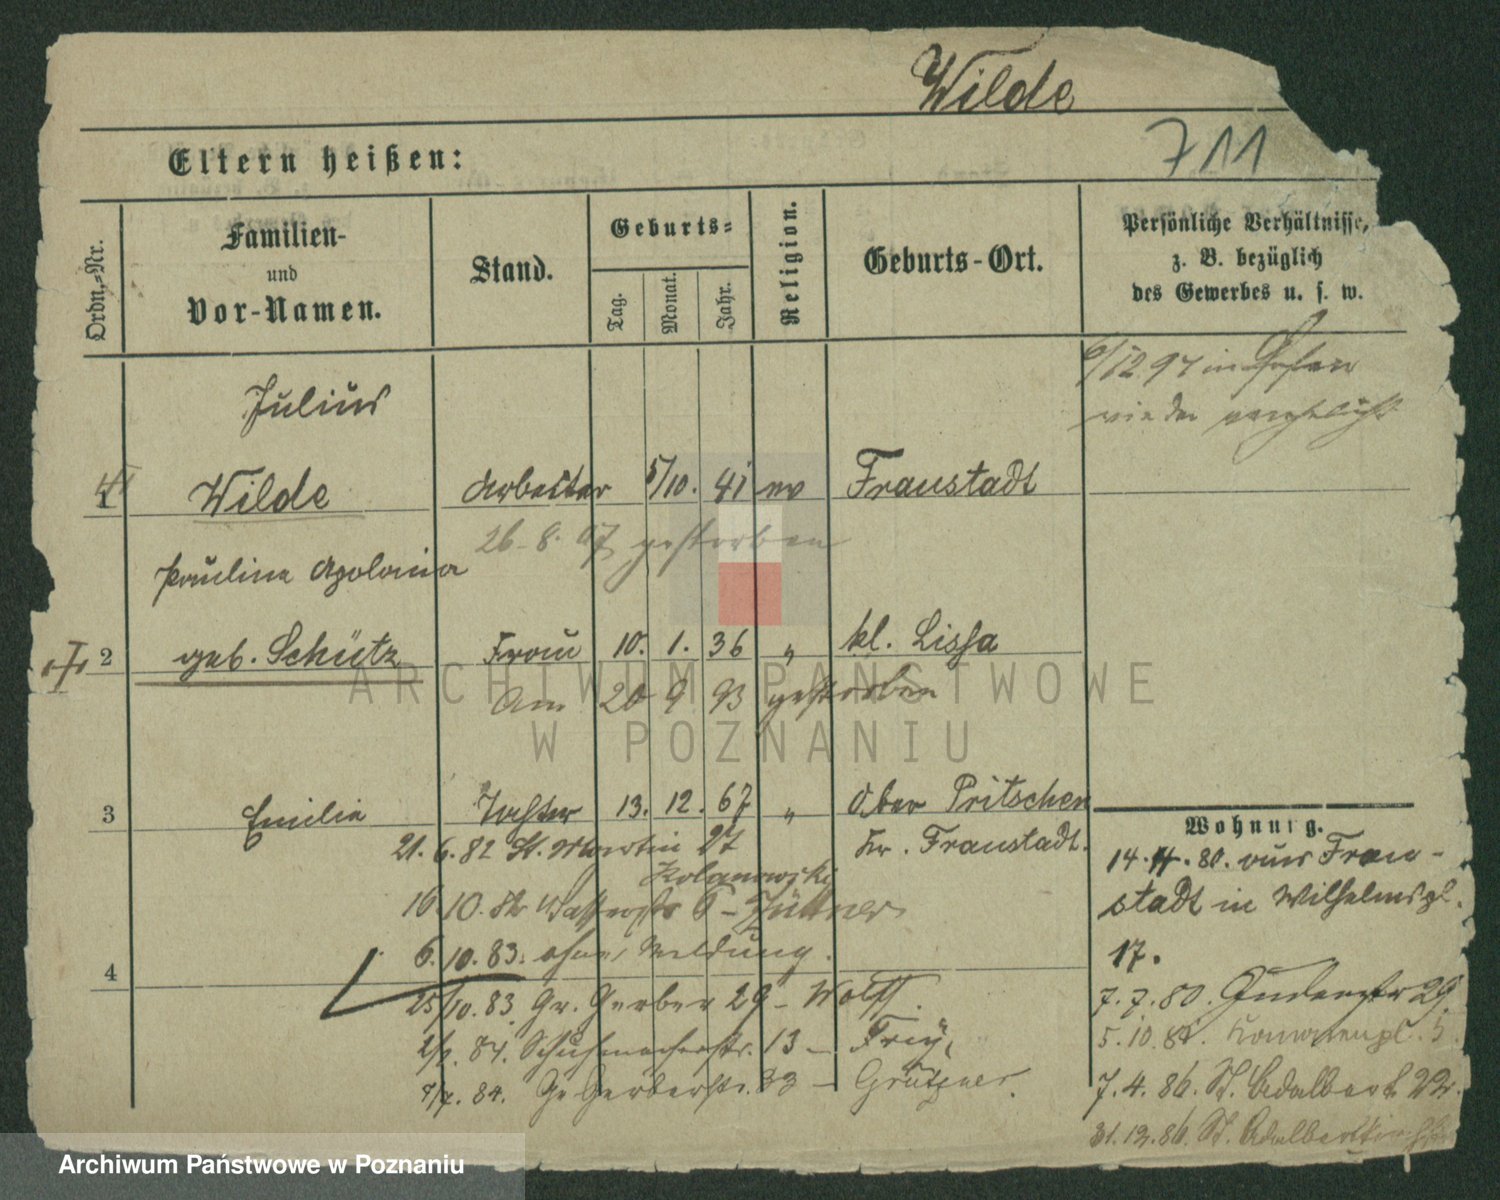 Wilde
711
Eltern heißen:
Ordn.-Nr.
Familien-
und
Vor-Namen.
Stand.
Geburts-
Tag.
Monat.
Jahr.
Religion.
Geburts-Ort.
Persönliche Verhältnisse,
z. B. bezüglich
des Gewerbes u. s. w.
6/12 97 in Posen
wieder
Julius
1 Wilde Arbeiter 5/10. 41 ev Fraustadt
26. 8. 07 gestorben
Pauline Apolonia
2 geb. Schütz Frau 10. 1. 36 " kl. Lissa
Am 20 9 93 gestorben
3 Emilie Tochter 13. 12. 67 " Ober Pritschen
Kr. Fraustadt.
21. 6. 82 St. Martin 27
Kolanowski
10. 6 - Züttner
6. 10. 83. ohne Meldung.
4
25/10. 83. Gr. Gerber 29 - Wolff.
84. Schuhmacherstr. 13 -
84. Gr. Gerberstr. 33 - Grützner.
Wohnung.
14. 4. 80. aus Frau-
stadt in Wilhelmspl.
17.
7. 7. 80. 29.
5. 10.
7. 4. 86. St. Adalbert 22.
31. 12. 86. St.
ARCHIWUM PAŃSTWOWE
W POZNANIU
Archiwum Państwowe w Poznaniu